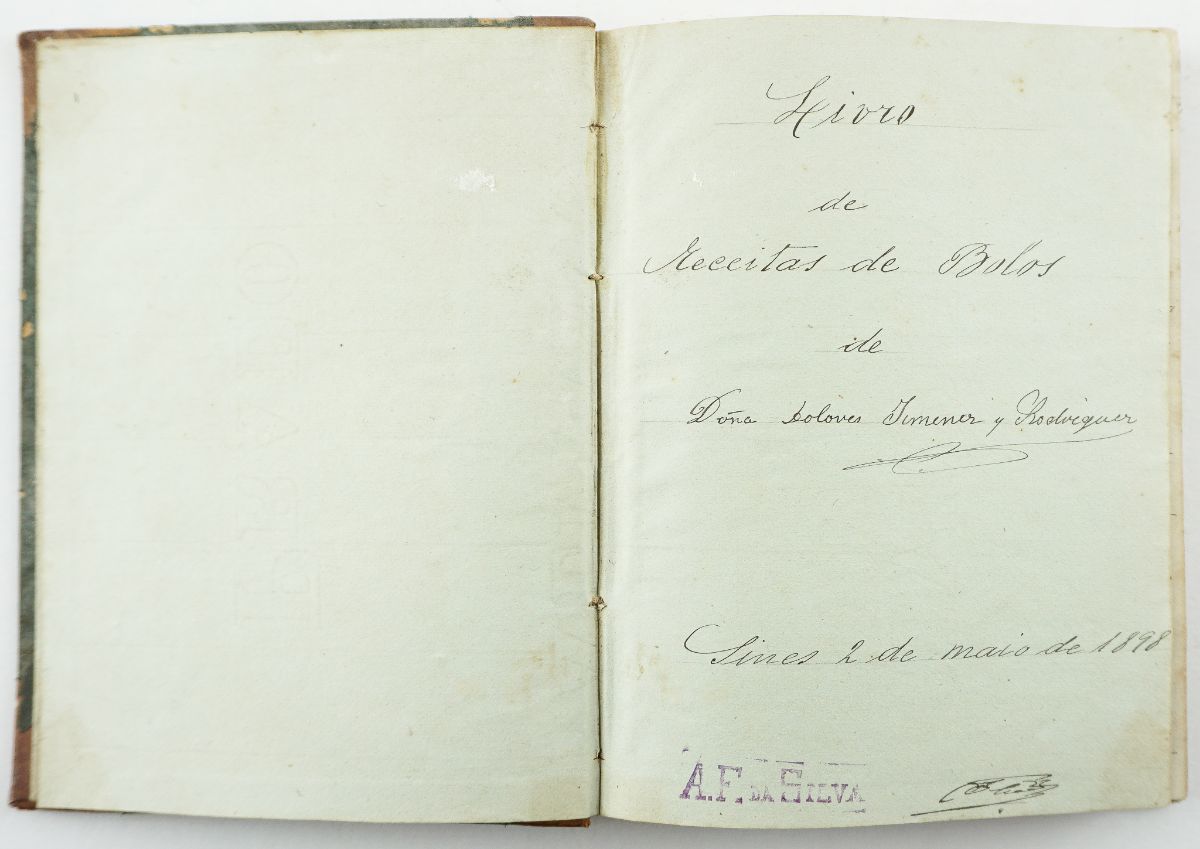 Livro
de
Receitas de Bolos
de
Doña Dolores Jimenez y Rodriguez
Sines 2 de maio de 1898
A. F. DA SILVA